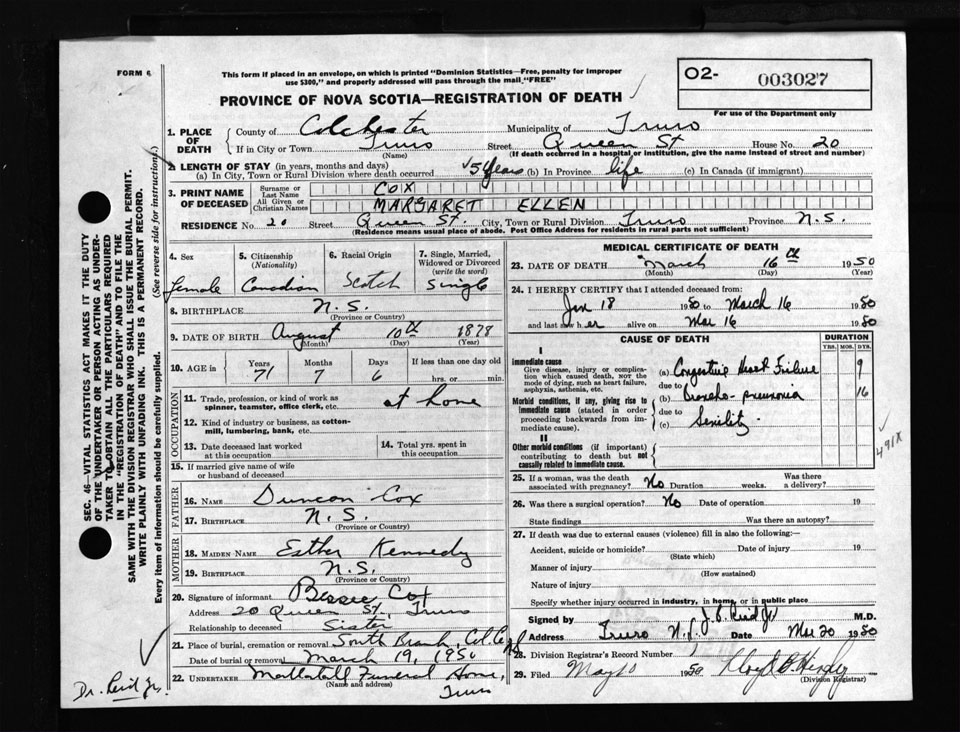 FORM 6
This form if placed in an envelope, on which is printed "Dominion Statistics—Free, penalty for improper
use $300," and properly addressed will pass through the mail "FREE"
O2- 003027
PROVINCE OF NOVA SCOTIA—REGISTRATION OF DEATH
For use of the Department only
1. PLACE OF DEATH
County of Colchester Municipality of Truro
If in City or Town Truro Street Queen St House No. 20
(Name) (If death occurred in a hospital or institution, give the name instead of street and number)
2. LENGTH OF STAY (in years, months and days)
(a) In City, Town or Rural Division where death occurred 5 years (b) In Province life (c) In Canada (if immigrant)
3. PRINT NAME OF DECEASED
Surname or Last Name COX
All Given or Christian Names MARGARET ELLEN
RESIDENCE No. 20 Street Queen St. City, Town or Rural Division Truro Province N.S.
(Residence means usual place of abode. Post Office Address for residents in rural parts not sufficient)
4. Sex
Female
5. Citizenship (Nationality)
Canadian
6. Racial Origin
Scotch
7. Single, Married, Widowed or Divorced (write the word)
Single
8. BIRTHPLACE N.S.
(Province or Country)
9. DATE OF BIRTH August 10th 1878
(Month) (Day) (Year)
10. AGE in Years Months Days If less than one day old
71 7 6 hrs. or min.
OCCUPATION
11. Trade, profession, or kind of work as spinner, teamster, office clerk, etc. at home
12. Kind of industry or business, as cotton-mill, lumbering, bank, etc.
13. Date deceased last worked at this occupation
14. Total yrs. spent in this occupation
15. If married give name of wife or husband of deceased
FATHER
16. NAME Duncan Cox
17. BIRTHPLACE N.S.
(Province or Country)
MOTHER
18. MAIDEN NAME Esther Kennedy
19. BIRTHPLACE N.S.
(Province or Country)
20. Signature of informant Bessie Cox
Address 20 Queen St., Truro
Relationship to deceased Sister
21. Place of burial, cremation or removal South Branch, Col. Co. NS
Date of burial or removal March 19, 1950
22. UNDERTAKER Mattatall Funeral Home,
(Name and address) Truro
MEDICAL CERTIFICATE OF DEATH
23. DATE OF DEATH March 16th 1950
(Month) (Day)
24. I HEREBY CERTIFY that I attended deceased from:
Jan 18 1950 to March 16 1950
and last saw her alive on Mar 16 1950
CAUSE OF DEATH
DURATION
YRS. MOS. DYS.
I
Immediate cause
Give disease, injury or complication which caused death, NOT the mode of dying, such as heart failure, asphyxia, asthenia, etc.
(a) Congestive Heart Failure 9
due to
Morbid conditions, if any, giving rise to immediate cause (stated in order proceeding backwards from immediate cause).
(b) Broncho-pneumonia 16
due to
(c) Senility
491X
II
Other morbid conditions (if important) contributing to death but not causally related to immediate cause.
25. If a woman, was the death associated with pregnancy? No Duration weeks. Was there a delivery?
26. Was there a surgical operation? No Date of operation 19
State findings Was there an autopsy?
27. If death was due to external causes (violence) fill in also the following:—
Accident, suicide or homicide? Date of injury 19
(State which)
Manner of injury
(How sustained)
Nature of injury
Specify whether injury occurred in industry, in home, or in public place
Signed by J. B. Reid Jr M.D.
Address Truro N.S. Date Mar 20 1950
28. Division Registrar's Record Number
29. Filed May 10 1950
(Division Registrar)
SEC. 46—VITAL STATISTICS ACT MAKES IT THE DUTY
OF THE UNDERTAKER OR PERSON ACTING AS UNDER-
TAKER TO OBTAIN ALL THE PARTICULARS REQUIRED
IN THE "REGISTRATION OF DEATH" AND TO FILE THE
SAME WITH THE DIVISION REGISTRAR WHO SHALL ISSUE THE BURIAL PERMIT.
WRITE PLAINLY WITH UNFADING INK. THIS IS A PERMANENT RECORD.
Every item of information should be carefully supplied. (See reverse side for instructions)
Dr. Reid Jr.